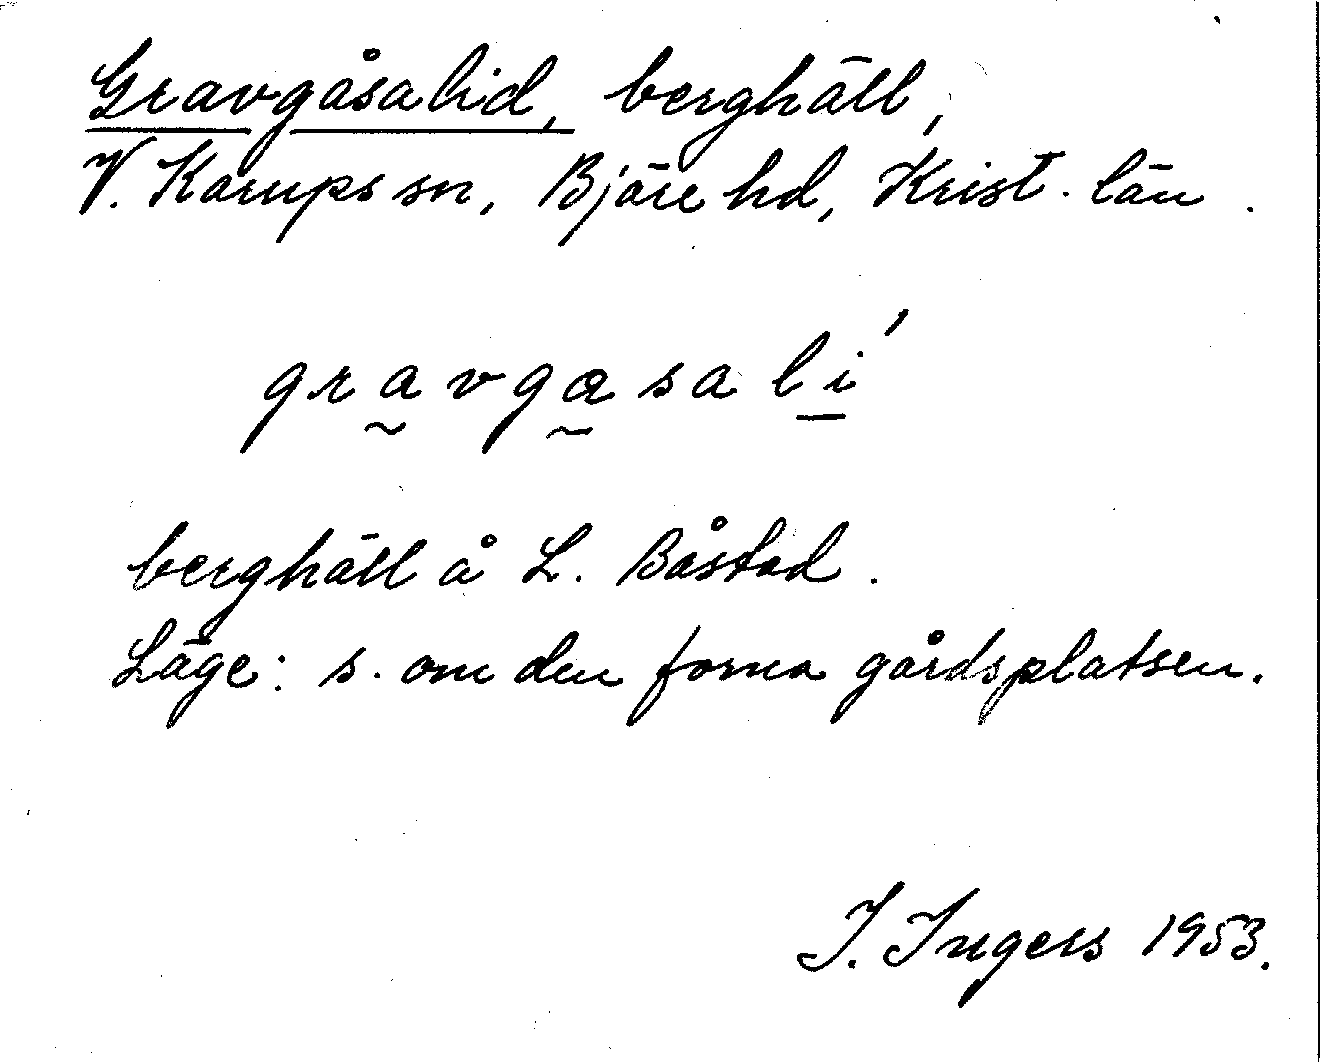 Gravgåsalid, berghäll,
V. Karups sn, Bjäre hd, Krist. län.
gravgasali´
berghäll å L. Båstad.
Läge: s. om den forna gårdsplatsen.
I. Ingers 1953.